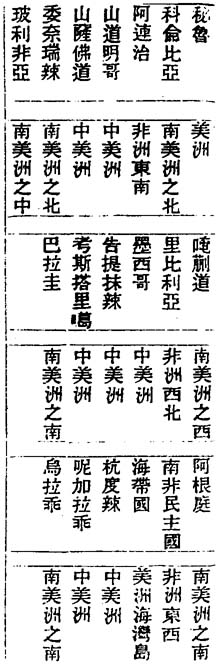 秘魯 美洲 唵蒯道 南美洲之西 阿根庭 南美洲之南
科侖比亞 南美洲之北 里比利亞 非洲西北 南非民主國 非洲東西
阿連治 非洲東南 墨西哥 中美洲 海帶國 美洲海灣島
山道明哥 中美洲 告提抹辣 中美洲 杭度辣 中美洲
山薩佛道 中美洲 考斯塔里噶 中美洲 呢加拉乖 中美洲
委奈瑞辣 南美洲之北 巴拉圭 南美洲之南 烏拉乖 南美洲之南
玻利非亞 南美洲之中